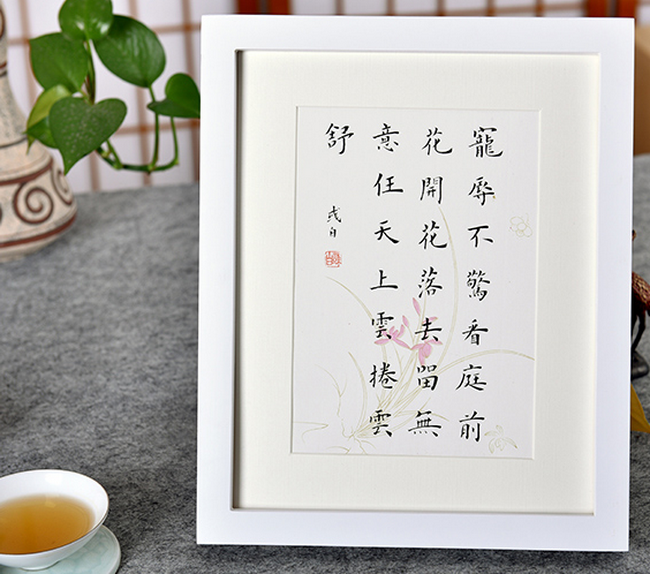 寵辱不驚看庭前
花開花落去留無
意任天上雲捲雲
舒